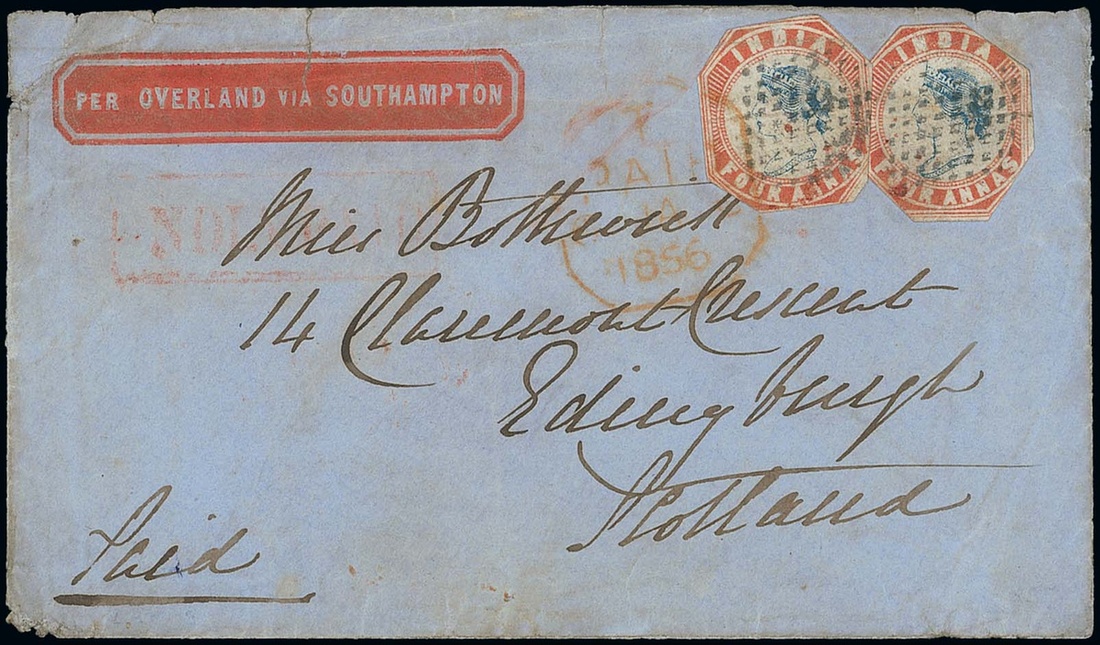 PER OVERLAND VIA SOUTHAMPTON
INDIA
FOUR ANNAS
INDIA
FOUR ANNAS
PAID
1856
Miss Bothwick
14 Claremont Crescent
Edingburgh
Scotland
Paid